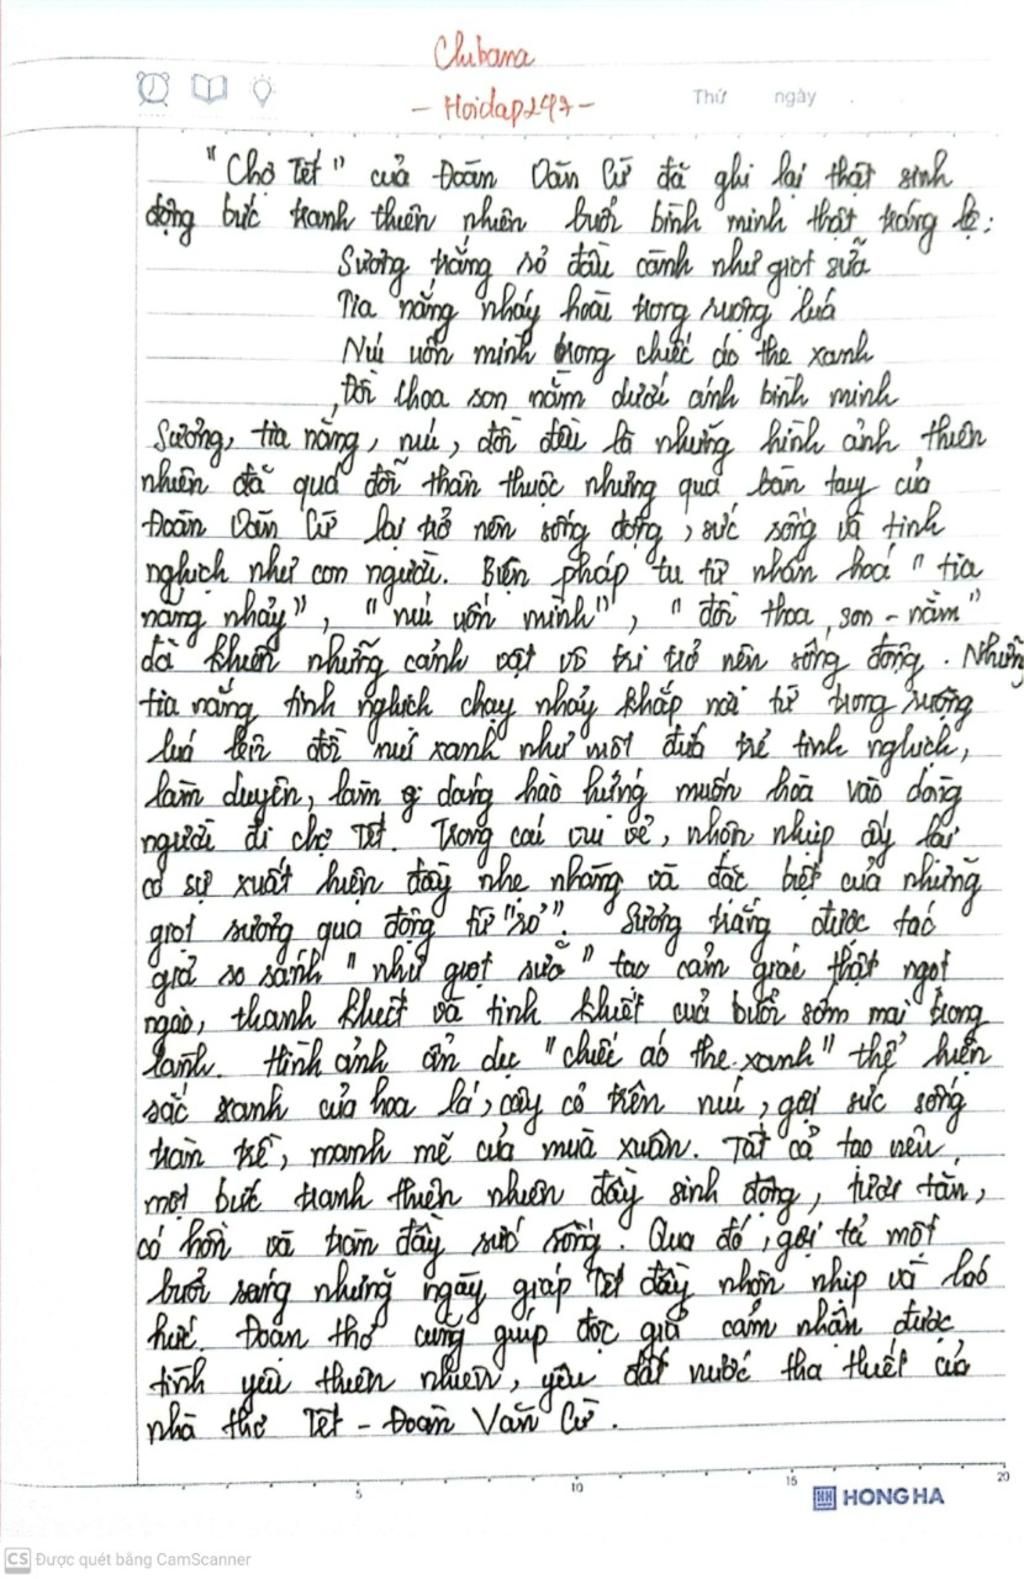 Chibana
- Hoidap247 -
Thứ ngày
"Chợ Tết" của Đoàn Văn Cừ đã ghi lại thật sinh
động bức tranh thiên nhiên buổi bình minh thật tráng lệ:
Sương trắng rỏ đầu cành như giọt sữa
Tia nắng nháy hoài trong ruộng lúa
Núi uốn mình trong chiếc áo the xanh
Đồi thoa son nằm dưới ánh bình minh
Sương, tia nắng, núi, đồi đều là những hình ảnh thiên
nhiên đã quá đỗi thân thuộc nhưng qua bàn tay của
Đoàn Văn Cừ lại trở nên sống động, sức sống và tinh
nghịch như con người. Biện pháp tu từ nhân hoá "tia
nắng nhảy", "núi uốn mình", "đồi thoa son - nằm"
đã khiến những cảnh vật vô tri trở nên sống động. Những
tia nắng tinh nghịch chạy nhảy khắp nơi từ trong ruộng
lúa lên đồi núi xanh như một đứa trẻ tinh nghịch,
làm duyên, làm dáng hào hứng muốn hòa vào dòng
người đi chợ Tết. Trong cái vui vẻ, nhộn nhịp ấy lại
có sự xuất hiện đầy nhẹ nhàng và đặc biệt của những
giọt sương qua động từ "rỏ". Sương trắng được tác
giả so sánh "như giọt sữa" tạo cảm giác thật ngọt
ngào, thanh khiết và tinh khiết của buổi sớm mai trong
lành. Hình ảnh ẩn dụ "chiếc áo the xanh" thể hiện
sắc xanh của hoa lá, cây cỏ trên núi, gợi sức sống
tràn trề, mạnh mẽ của mùa xuân. Tất cả tạo nên
một bức tranh thiên nhiên đầy sinh động, tươi tắn,
có hồn và tràn đầy sức sống. Qua đó, gợi tả một
buổi sáng những ngày giáp Tết đầy nhộn nhịp và láo
hức. Đoạn thơ cũng giúp độc giả cảm nhận được
tình yêu thiên nhiên, yêu đất nước tha thiết của
nhà thơ Tết - Đoàn Văn Cừ.
5 10 15 20
HONG HA
CS Được quét bằng CamScanner